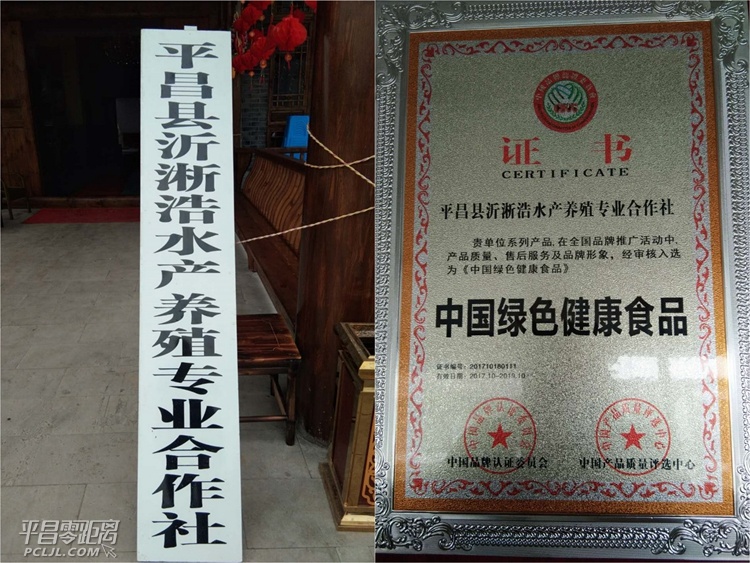 平昌县沂淅浩水产养殖专业合作社
平昌零距离
PCLJL.COM
证书
CERTIFICATE
平昌县沂淅浩水产养殖专业合作社
贵单位系列产品,在全国品牌推广活动中,
产品质量、售后服务及品牌形象,经审核入选
为《中国绿色健康食品》
中国绿色健康食品
证书编号:201710180111
有效日期:2017.10-2019.10
中国品牌认证委员会
中国产品质量评选中心